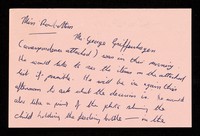 Miss
Mr George Griffenhagen
(correspondence attached) was in this morning
he would like to see the items on the attached
list if possible. He will be in again this
afternoon to ask what the decision is. He would
also like a print of the photo showing the
child holding the feeding bottle — in the